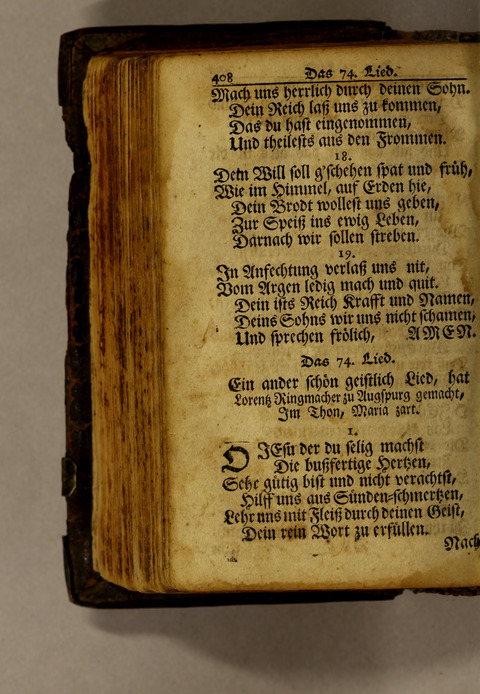 408 Das 74. Lied.
Mach uns herrlich durch deinen Sohn.
Dein Reich laß uns zu kommen,
Das du hast eingenommen,
Und theilests aus den Frommen.
18.
Dein Will soll g'schehen spat und früh,
Wie im Himmel, auf Erden hie,
Dein Brodt wollest uns geben,
Zur Speiß ins ewig Leben,
Darnach wir sollen streben.
19.
In Anfechtung verlaß uns nit,
Vom Argen ledig mach und quit.
Dein ists Reich Krafft und Namen,
Deins Sohns wir uns nicht schamen,
Und sprechen frölich, AMEN.
Das 74. Lied.
Ein ander schön geistlich Lied, hat
Lorentz Ringmacher zu Augspurg gemacht,
Im Thon, Maria zart.
1.
O JEsu der du selig machst
Die bußfertige Hertzen,
Sehe gütig bist und nicht verachtst,
Hilff uns aus Sünden-schmertzen,
Lehr uns mit Fleiß durch deinen Geist,
Dein rein Wort zu erfüllen.
Nach